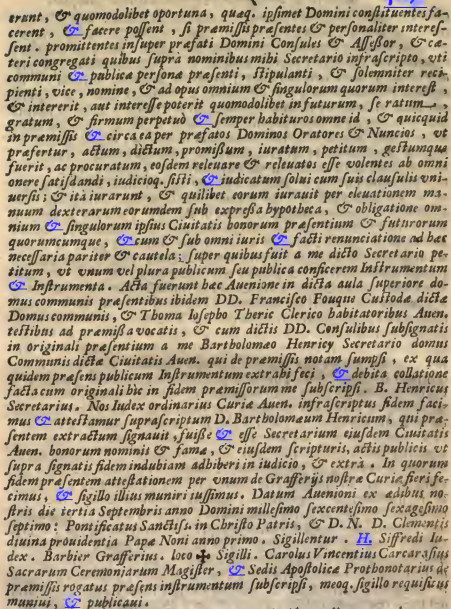 erunt, & quomodolibet oportuna, quæq. ipsimet Domini constituentes fa-
cerent, & facere possent, si præmissis præsentes & personaliter interes-
sent. promittentes insuper præfati Domini Consules & Assessor, & cæ-
teri congregati quibus supra nominibus mihi Secretario infrascripto, vti
communi & publica persona præsenti, stipulanti, & solemniter reci-
pienti, vice, nomine, & ad opus omnium & singulorum quorum interest,
& intererit, aut interesse poterit quomodolibet in futurum, se ratum,
gratum, & firmum perpetuò & semper habituros omne id, & quicquid
in præmissis & circa ea per præfatos Dominos Oratores & Nuncios, vt
præfertur, actum, dictum, promissum, iuratum, petitum, gestumque
fuerit, ac procuratum, eosdem releuare & releuatos esse volentes ab omni
onere satisdandi, iudicioq. sisti, & iudicatum solui cum suis clausulis vni-
uersis; & ità iurarunt, & quilibet eorum iurauit per eleuationem ma-
nuum dexterarum eorumdem sub expressa hypotheca, & obligatione om-
nium & singulorum ipsius Ciuitatis bonorum præsentium & futurorum
quorumcumque, & cum & sub omni iuris & facti renunciatione ad hæc
necessaria pariter & cautela; super quibus fuit a me dicto Secretario pe-
titum, vt vnum vel plura publicum seu publica conficerem Instrumentum
& Instrumenta. Acta fuerunt hæc Auenione in dicta aula superiore do-
mus communis præsentibus ibidem DD. Francisco Fouque Custode dictæ
Domus communis, & Thoma Iosepho Theric Clerico habitatoribus Auen.
testibus ad præmissa vocatis, & cum dictis DD. Consulibus subsignatis
in originali præsentium a me Bartholomæo Henricy Secretario domus
Communis dictæ Ciuitatis Auen. qui de præmissis notam sumpsi, ex qua
quidem præsens publicum Instrumentum extrahi feci, & debita collatione
facta cum originali hic in fidem præmissorum me subscripsi. B. Henricus
Secretarius. Nos Iudex ordinarius Curiæ Auen. infrascriptus fidem faci-
mus & attestamur suprascriptum D. Bartholomæum Henricum, qui præ-
sentem extractum signauit, fuisse & esse Secretarium eiusdem Ciuitatis
Auen. bonorum nominis & famæ, & eiusdem scripturis, actis publicis vt
supra signatis fidem indubiam adhiberi in iudicio, & extrà. In quorum
fidem præsentem attestationem per vnum de Grafferijs nostræ Curiæ fieri fe-
cimus, & sigillo illius muniri iussimus. Datum Auenioni ex ædibus no-
stris die tertia Septembris anno Domini millesimo sexcentesimo sexagesimo
septimo: Pontificatus Sanctiss. in Christo Patris, & D. N. D. Clementis
diuina prouidentia Papæ Noni anno primo. Sigillentur. H. Siffredi Iu-
dex. Barbier Grafferius. loco ✠ Sigilli. Carolus Vincentius Carcarasius
Sacrarum Ceremoniarum Magister, & Sedis Apostolicæ Prothonotarius de
præmissis rogatus præsens instrumentum subscripsi, meoq. sigillo requisitus
muniui, & publicaui.